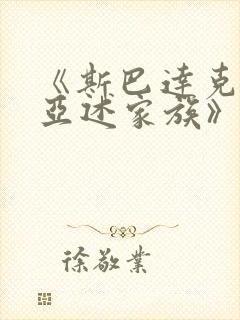 《斯巴达克
亚述家族》
徐敬业